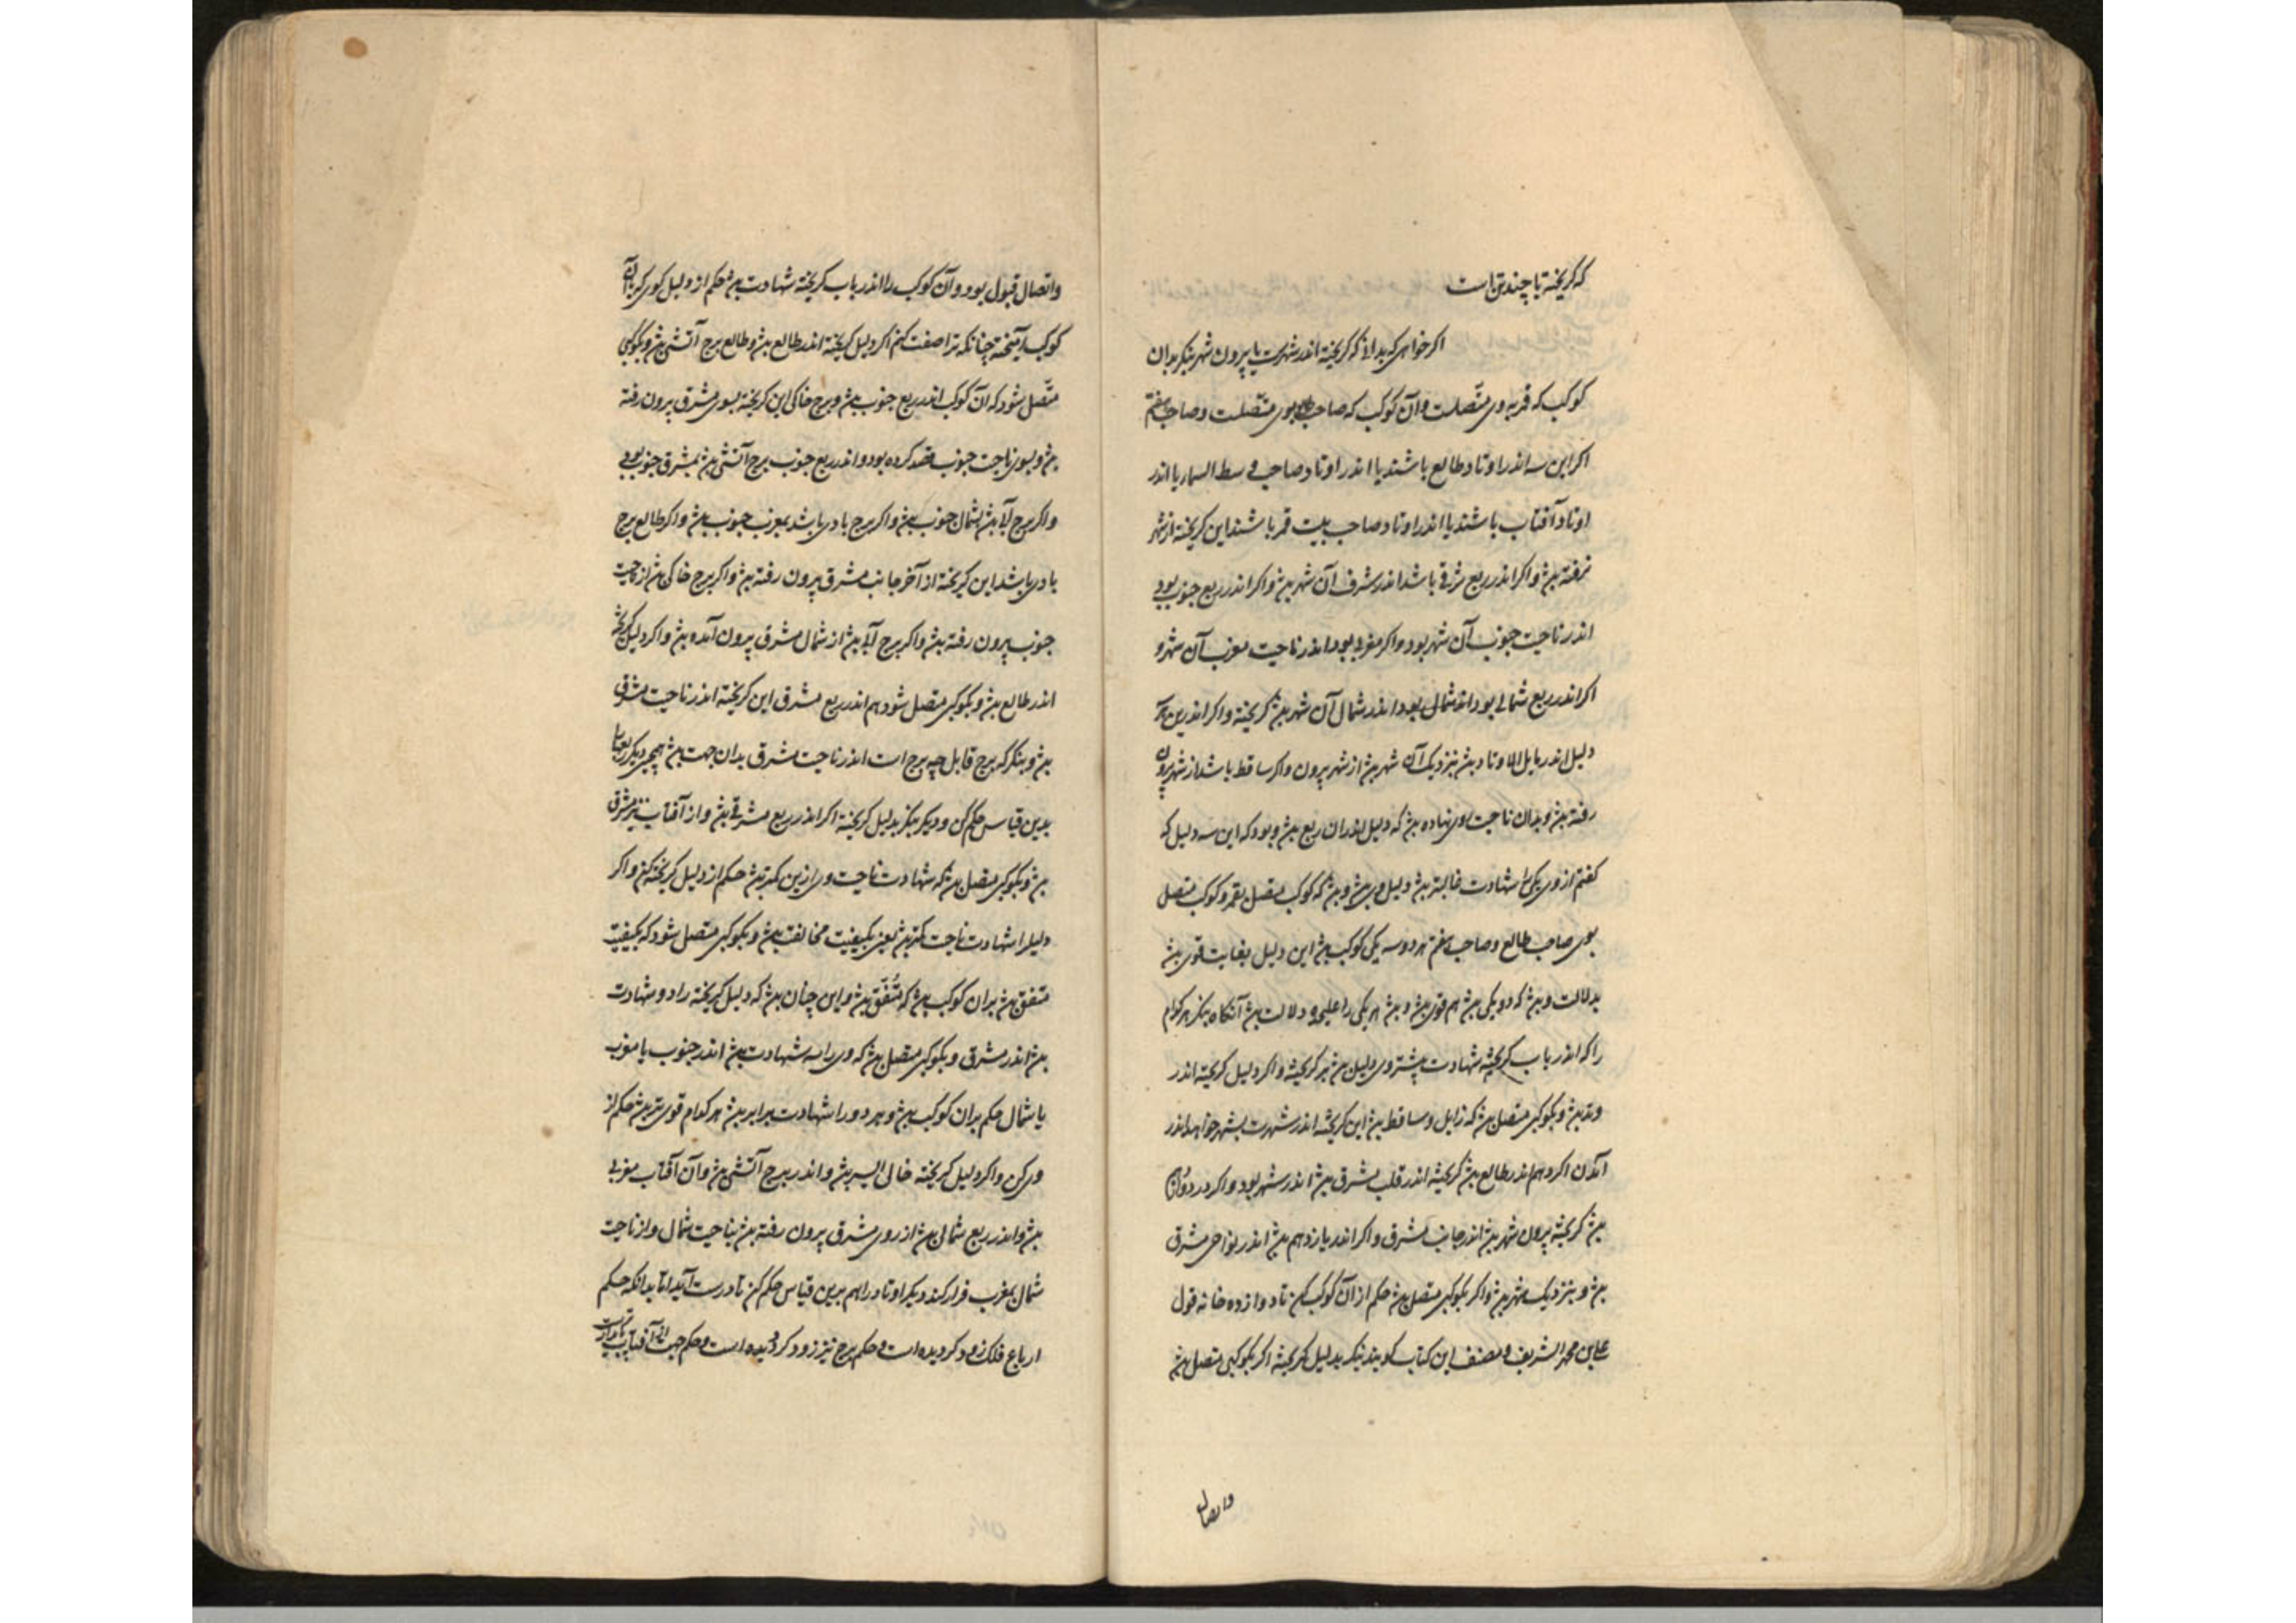 که کریخته تا چند تن است
اکر خواهی که بدانی که کریخته اندر شهرست یا بیرون شهر بنکر بدان
کوکب که قمر به وی متّصلست وآن کوکب که صاحب طالع بوی متّصلست وصاحب هفتم
اکر این سه اندر اوتاد طالع باشند یا اندر اوتاد صاحب وسط السماء یا اندر
اوتاد آفتاب باشند یا اندر اوتاد صاحب بیت قمر باشند این کریخته از شهر
نرفته بش واکر اندر ربع شرقی باشد اندر شرف آن شهر بش واکر اندر ربع جنوب بود
اندر ناحیت جنوب آن شهر بود واکر مغربی بود اندر ناحیت مغرب آن شهر و
اکر اندر ربع شمالی بود اندر شمال آن شهر بش کریخته واکر اندرین
دلیل اندر مایل الاوتاد بش نزدیک آن شهر بش از شهر بیرون واکر ساقط باشد از شهر بیرون
رفته بش وبدان ناحیت اوی نهاده بش که دلیل اندران ربع بش وبود که این سه دلیل که
کفتم از وی یکی را شهادت غالبتر بش دلیل وی بش وبش که کوکب متصل بقمر وکوکب متصل
بوی صاحب طالع وصاحب هفتم هر دو سه یکی کوکب بش این دلیل بغایت قوی بش
بدلالت وبش که دو یکی بش هم قوی بش وبش هر یکی را دلالت بش آنکاه بنکر هر کدام
را که اندر باب کریخته شهادت بیشتر وی دلیل بش بر کریخته واکر دلیل کریخته اندر
وتد بش وبکوکبی متصل بش که زایل وساقط بش این کریخته اندر شهرست بشهر خواهد اندر
آمدن اکر دهم اندر طالع بش کریخته اندر قلب مشرق بش اندر شهر بود واکر در
بش کریخته بیرون شهر بش اندر جانب مشرق واکر اندر یازدهم بش اندر نواحی مشرق
بش وبنزدیک شهر بش واکر بکوکبی متصل بش حکم از آن کوکب کن تا دوازده خانه قول
علی بن محمد الشریف ومصنف این کتاب کویند بنکر بدلیل کریخته اکر بکوکبی متصل بش
واتصال
واتصال قبول بود وآن کوکب را اندر باب کریخته شهادت بش حکم از دلیل کوی که بآن
کوکب آمیخته چنانکه ترا صفت کنم اکر دلیل کریخته اندر طالع بش وطالع برج آتشی بش وبکوکبی
متّصل شود که آن کوکب اندر ربع جنوب بش وبرج خاکی این کریخته بسوی مشرق بیرون رفته
بش وبسوی ناحیت جنوب قصد کرده بود واندر ربع جنوب برج آتشی بش بمشرق جنوب بود
واکر برج آبی بش بشمال جنوب بش واکر برج بادی باشد بمغرب جنوب بش واکر طالع برج
بادی باشد این کریخته از آخر جانب مشرق بیرون رفته بش واکر برج خاکی بش از ناحیت
جنوب بیرون رفته بش واکر برج آبی بش از شمال مشرق بیرون آمده بش واکر دلیل کریخته
اندر طالع بش وبکوکبی متصل شود هم اندر ربع مشرق این کریخته اندر ناحیت مشرق
بش وبنکر که برج قابل چه برج است اندر ناحیت مشرق بدان جهت بش همچنین دیکر ربعها
بدین قیاس حکم کن ودیکر بنکر بدلیل کریخته اکر اندر ربع مشرقی بش واز آفتاب نیز مشرقی
بش وبکوکبی متصل بش که شهادت ناحیت وی ازین کمتر بش حکم از دلیل کریخته کن واکر
دلیل را شهادت ناحیت کمتر بش یعنی بکیفیت مخالف بش وبکوکبی متصل شود که بکیفیت
متفق بش بران کوکب بش که متّفق بش واین چنان بش که دلیل کریخته را دو شهادت
بش اندر مشرق وبکوکبی متصل بش که وی را سه شهادت بش اندر جنوب یا مغرب
یا شمال حکم بران کوکب بش وهر دو را شهادت برابر بش هر کدام قوی تر بش حکم از
وی کن واکر دلیل کریخته خالی السیر بش واندر برج آتشی بش وآن آفتاب مغربی
بش واندر ربع شمالی بش از روی مشرق بیرون رفته بش بناحیت شمال واز ناحیت
شمال بمغرب فرار کند دیکر اوتاد را هم برین قیاس حکم کن تا درست آید اما بدانکه حکم
ارباع فلک زود کردیده است وحکم برج نیز زود کردیده است وحکم جهت آفتاب